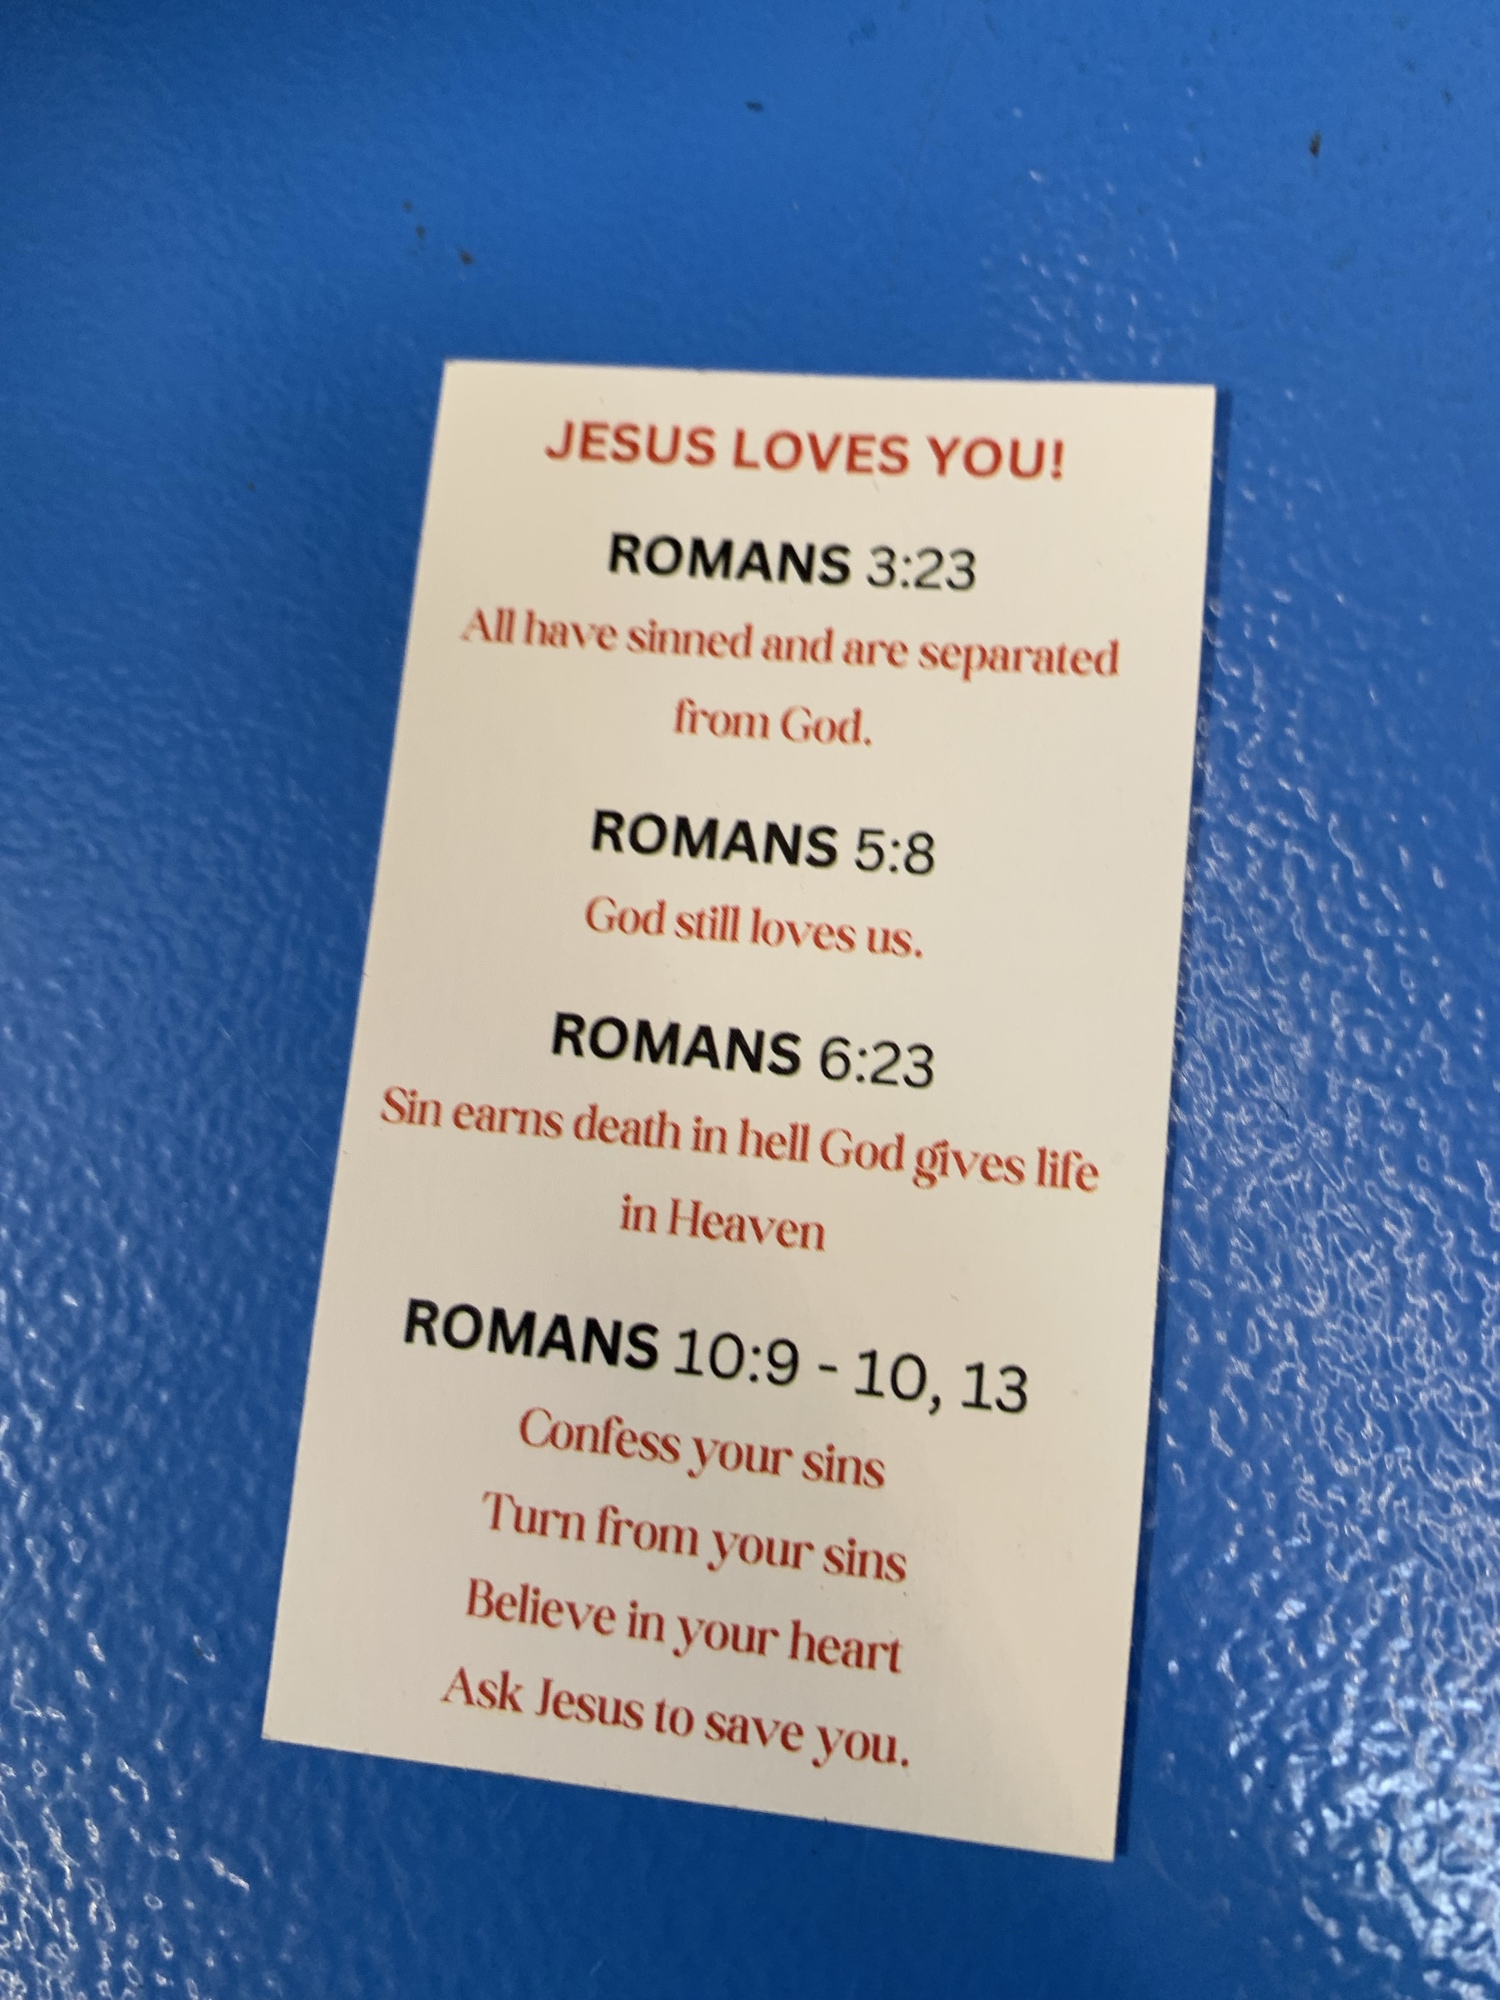 JESUS LOVES YOU!
ROMANS 3:23
All have sinned and are separated
from God.
ROMANS 5:8
God still loves us.
ROMANS 6:23
Sin earns death in hell God gives life
in Heaven
ROMANS 10:9 - 10, 13
Confess your sins
Turn from your sins
Believe in your heart
Ask Jesus to save you.